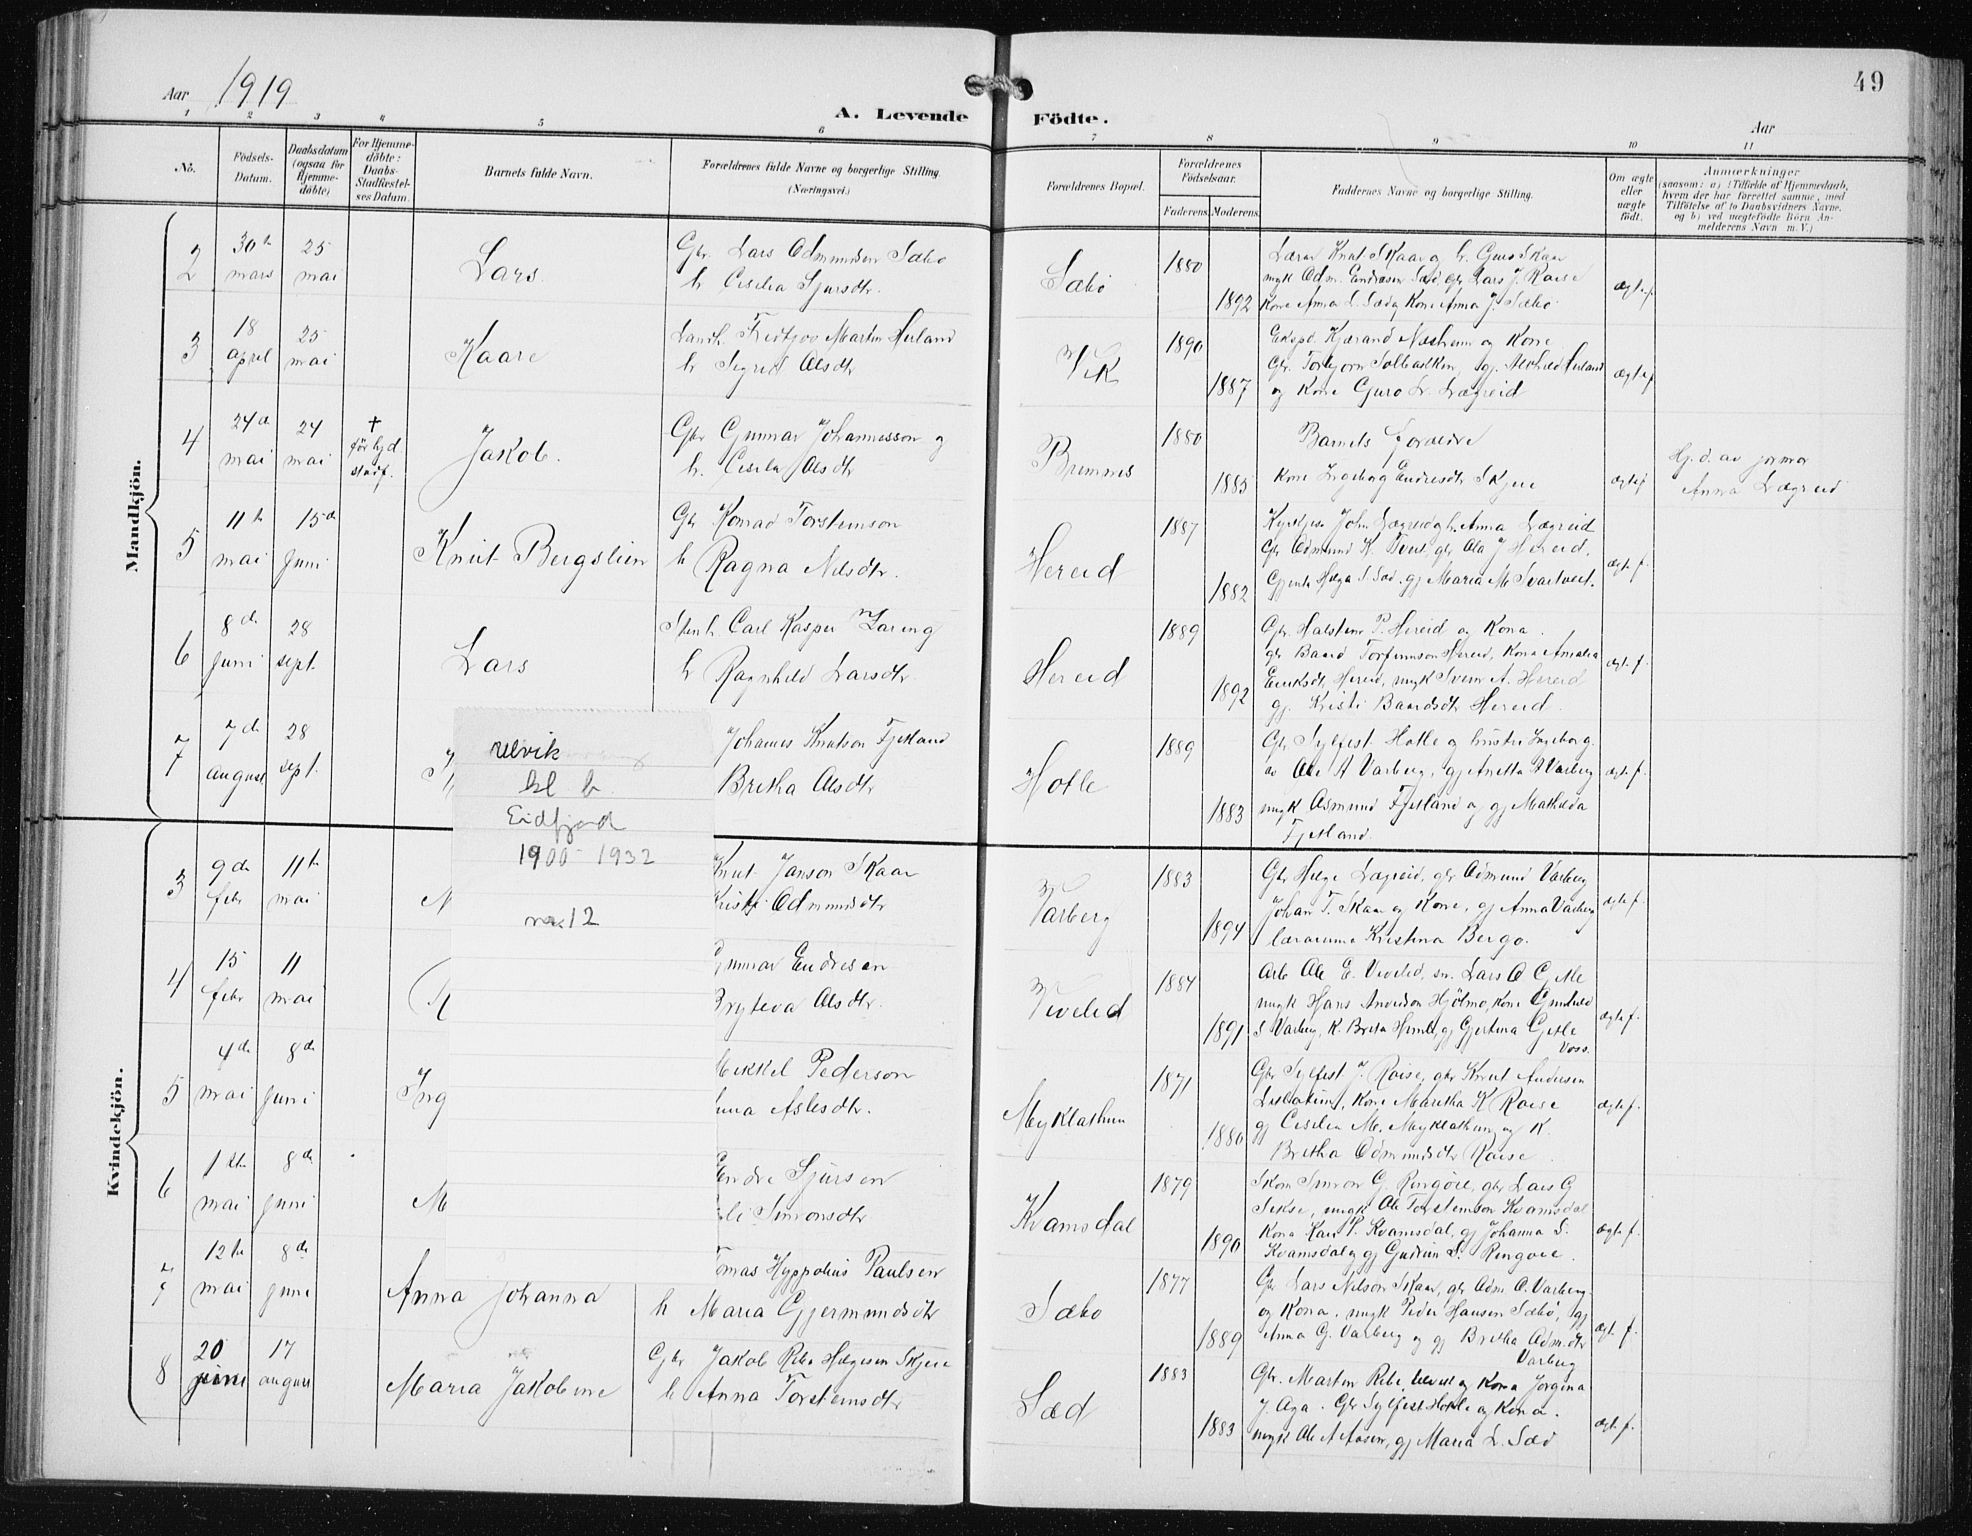 49
Aar 1919
A. Levende Födte.
Aar
1 2 3 4 5 6 7 8 9 10 11
No.
Födsels-Datum.
Daabsdatum (ogsaa for Hjemme-döbte)
For Hjemme-döbte: Daabs-Stadfæstel-ses Datum.
Barnets fulde Navn.
Forældrenes fulde Navne og borgerlige Stilling. (Næringsvei.)
Forældrenes Bopæl.
Forældrenes Födselsaar.
Faderens. Moderens.
Faddernes Navne og borgerlige Stilling.
Om ægte eller uægte födt.
Anmærkninger
(saasom: a) i Tilfælde af Hjemmedaab,
hvem der har forrettet samme, med
Tilföielse af to Daabsvidners Navne.
og b) ved uegtefödte Börn An-
melderens Navn m. V.)
Mandkjön.
2
30te mars
25 mai
Lars.
Gbr. Lars Odmundsen Sæbö
h. Cecilia Sjursdtr.
Sæbö
1880
1892
Lærar Knut Skaar og h. Guro Skaar
ungk Odm. Endresen Sæd, gbr Lars J. Røise
Kone Anna L. Sæd og Kone Anna J. Sæbö
ægtef.
3
18 april
25 mai
Kaare
Landh. Fredtjov Martin Herland
h. Sigrid Olsdtr
Vik
1890
1887
Eksped. Kjærand Næsheim og Kone
og Kone Guro L. Lægreid
ægtef
4
24de mai
24 mai
†
før hjd
stadf.
Jakob.
Gbr Gunnar Johannesson og
h. Cecilia Olsdtr
Bremnes
1880
1885
Barnets foreldre
Kone Ingeborg Endresdtr Skjeie
ægtef
Hj. d. av jormor
Anna Lægreid
5
11te mai
15de juni
Knut Bergslien
Gbr Konrad Torsteinson
h Ragna Nilsdtr.
Hereid
1887
1882
Kyrkjes. John Lægreid og h. Anna Lægreid
Gbr Odmund K. Tveit, gbr Ola J Hereid.
Gjente Helga S. Sæd. gj Maria M. Svartveit.
ægte f.
6
8de juni
28 sept.
Lars
Stenh. Carl Kasper Zaring
h Ragnhild Larsdtr.
Hereid
1889
1892
Gbr. Halstein P. Hereid og Kona.
gbr Baard Torfinnson Hereid, Kona Amalia
Eriksdtr Hereid, ungk Svein A. Hereid
gj. Kristi Baardsdtr Hereid.
ægt. f.
7
7de august
28 sept.
Johannes Knutson Fjetland
Britha Olsdtr
Hotle
1889
1883
Gbr Sylfest Hotle og hustru Ingeborg.
av Ole A Varberg, gj Anetta A Varberg
ungk Asmund Fjetland og gj Mathilda
Fjetland.
ægte f.
Ulvik
kl. b.
Eidfjord
1900-1932
nr. 12
Kvindekjön.
3
9de febr
11te mai
Knut Janson Skaar
Kristi Odmundsdtr
Varberg
1883
1894
Gbr Helge Lægreid, gbr Odmund Varberg
Johan T. Skaar og Kone, gj Anna Varberg
lærarinne Kristina Bergo.
ægte f.
4
15 febr
11 mai
Gunnar Endresen
Bryteva Olsdtr.
Viveled
1884
1891
Arb Ole E. Viveled, sn. Lars O Gjetle
ungk Hans Anvedson Hjölmo, Kone Gunhild
S Varberg, K. Brita Himle, gj Gjertina Gjetle
Voss.
ægte f.
5
4de mai
8de juni
Ing
Mikkel Pederson
Anna Aslesdtr.
Myklathun
1871
1880
Gbr Sylfest J. Røise, gbr Knut Andersen
Lislatun, Kone Maritha K Røise
gj Cecilia M. Myklathun og K.
Britha Odmundsdtr Røise.
ægte f.
6
1ste mai
8de juni
M
Endre Sjursen
Simonsdtr
Kvamsdal
1879
1890
Skom Simon G. Ringöie, gbr Lars G
Sekse, ungk Ole Torsteinson Kvamsdal
Kona Kari P. Kvamsdal, gj Johanna S.
Kvamsdal og gj Gudrun S. Ringöie.
ægte f.
7
12te mai
8de juni
Anna Johanna
Tomas Hyppolius Paulsen
h Maria Gjermundsdtr
Sæbo
1877
1889
Gbr Lars Nilson Skaar, gbr Odm O. Varberg
og Kona. ungk Peder Hansen Sæbö, gj
Anna G. Varberg og gj Britha Odm.dtr
Varberg
ægte f.
8
20 juni
17 august
Maria Jakobine
Gbr Jakob Ribe Helgesen Skjeie
h Anna Torsteinsdtr
Sæd
1883
1883
Gbr. Martin Ribe, Ulvik og Kona Jorgina
J. Aga. Gbr Sylfest Hotle og Kona.
ungk Ole A Aasen, gj Maria L. Sæd
ægte f.